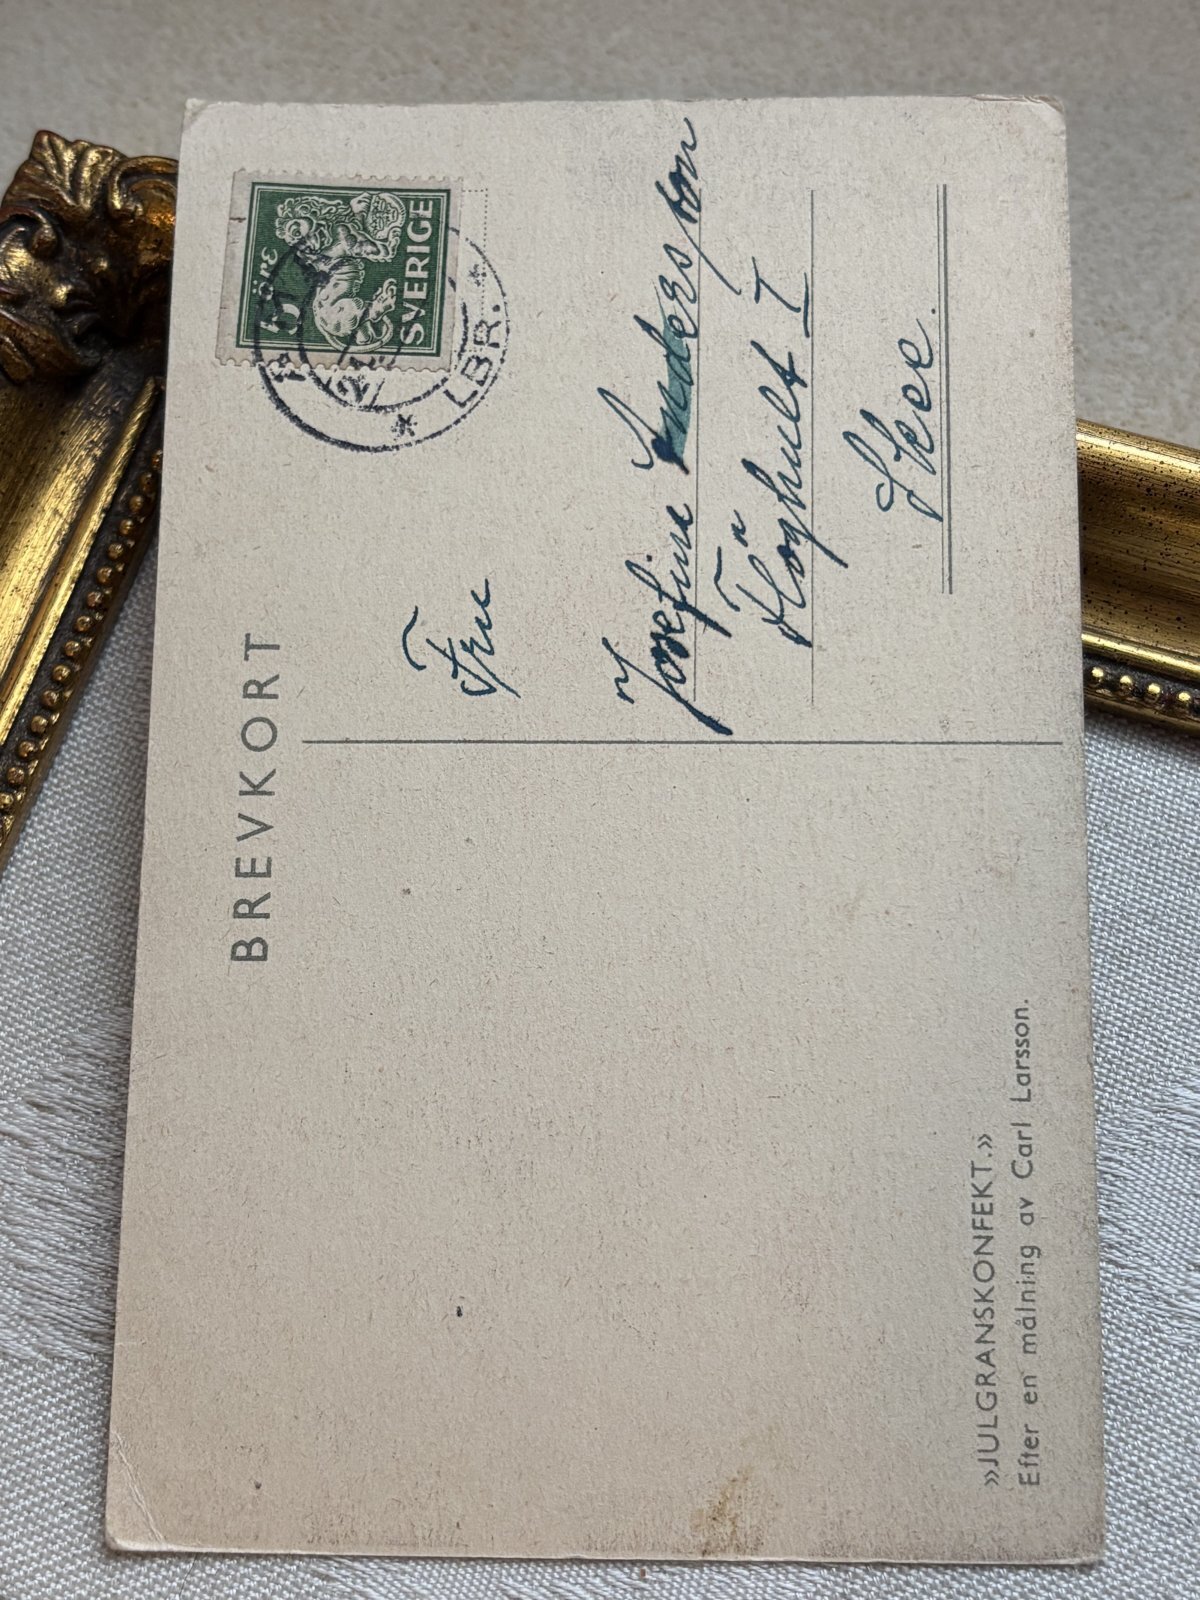 BREVKORT
5 ÖRE
SVERIGE
LBR.
Fru
Josefina Andersson
Höghult I
Skee.
»JULGRANSKONFEKT.»
Efter en målning av Carl Larsson.